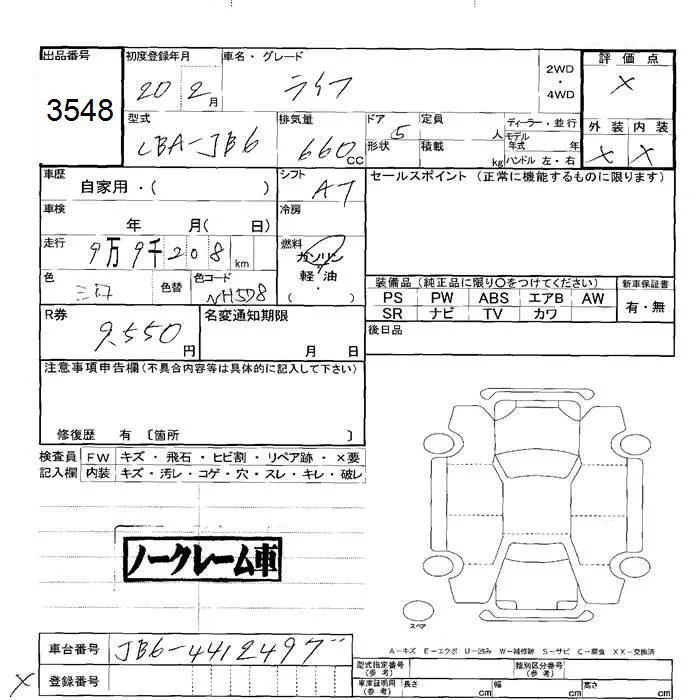 出品番号 初度登録年月 車名・グレード 2WD・4WD 評価点
3548 20 2月 ライフ ×
型式 排気量 ドア 定員 ディーラー・並行 外装 内装
CBA-JB6 660cc 5 人 モデル年式 年 × ×
形状 積載 kg ハンドル 左・右
車歴 シフト セールスポイント (正常に機能するものに限ります)
自家用・( ) AT
車検 冷房
年 月( 日)
走行 燃料
9万9千208km ガソリン
軽油
・
( )
色 色替 色コード
NH578
装備品(純正品に限り○をつけてください) 新車保証書
PS PW ABS エアB AW 有・無
SR ナビ TV カワ
R券 名変通知期限 後日品
9,550円 月 日
注意事項申告欄(不具合内容等は具体的に記入して下さい)
修復歴 有 〔箇所 〕
検査員 FW キズ・飛石・ヒビ割・リペア跡・×要
記入欄 内装 キズ・汚レ・コゲ・穴・スレ・キレ・破レ
ノークレーム車
スペア
A-キズ E-エクボ U-凹み W-補修跡 S-サビ C-腐食 XX-交換済
車台番号 JB6-4412497
× 登録番号
型式指定番号(参考) 類別区分番号(参考)
車庫証明用(参考) 長さ cm 幅 cm 高さ cm